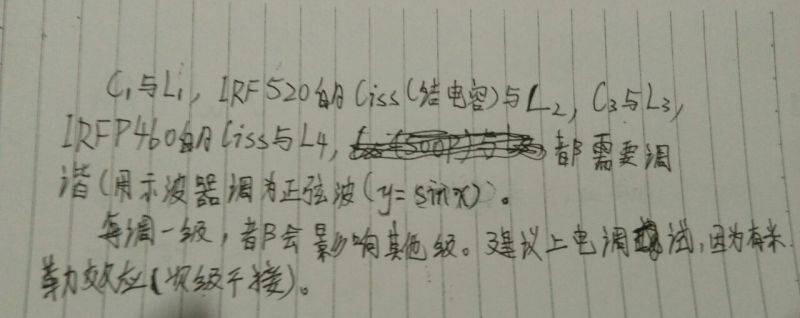 C₁与L₁, IRF520的Ciss(结电容)与L₂, C₃与L₃,
IRFP460的Ciss与L4, 都需要调
谐(用示波器调为正弦波(y=sinx)。
每调一级,都会影响其他级。建议上电调试,因为有米
勒效应(次级千接)。